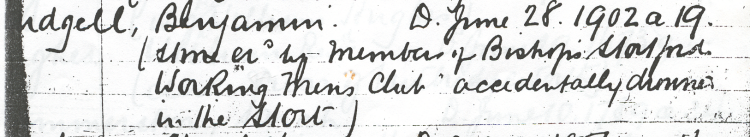 udgell, Benjamin. D. June 28. 1902 a 19.
(stone er<sup>d</sup> by members of Bishops Stortford
Working Mens Club accidentally drowned
in the Stort.)